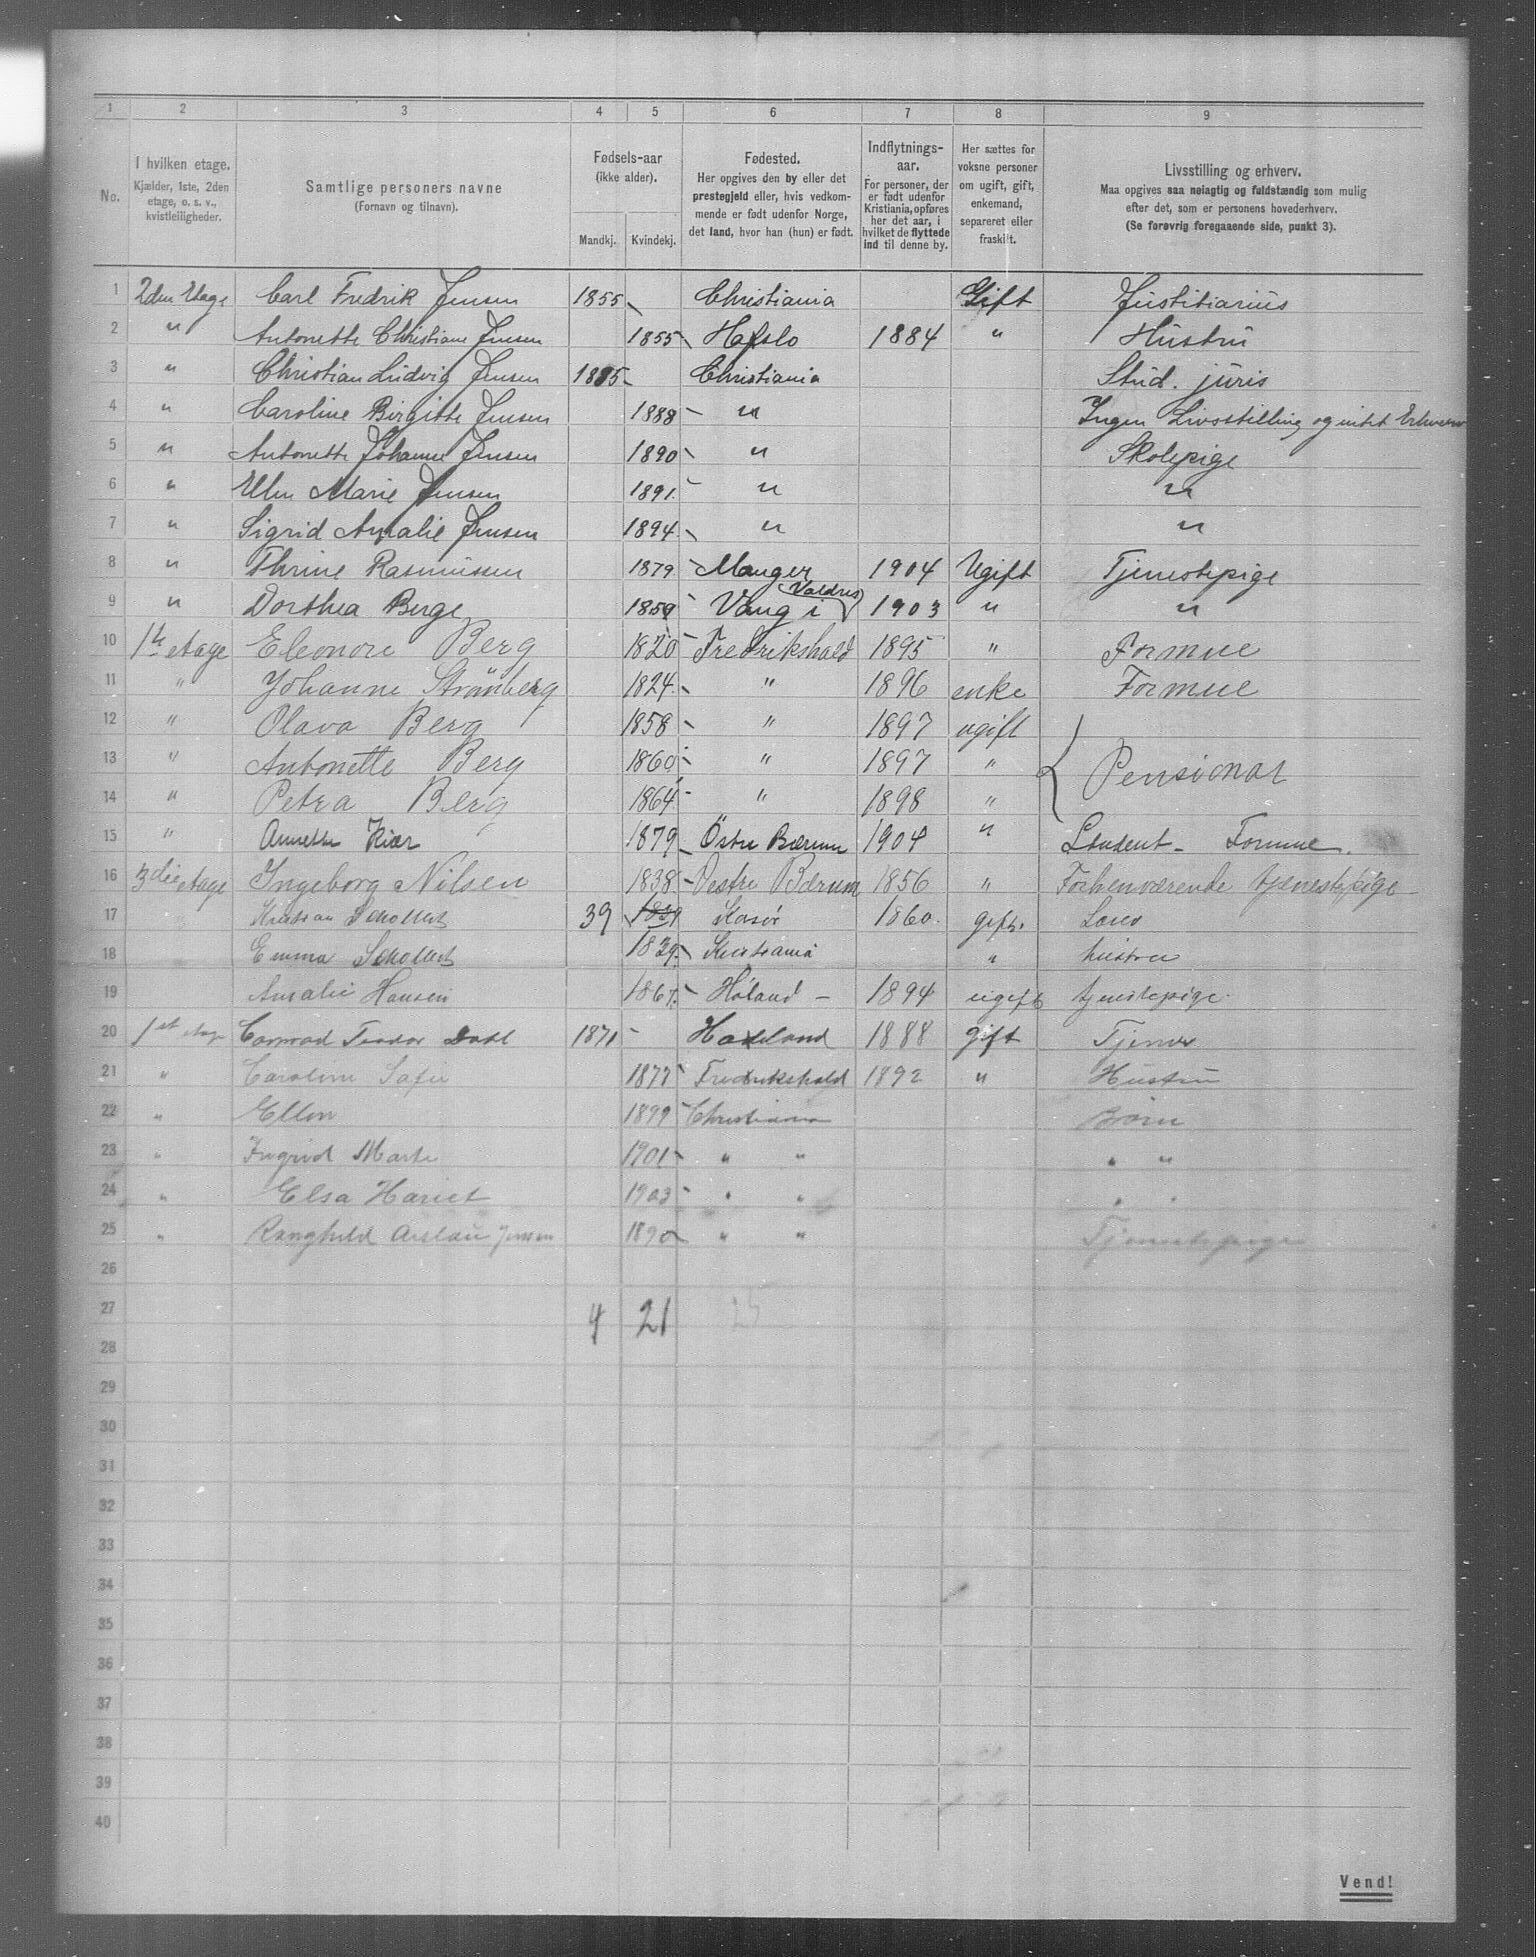 1 2 3 4 5 6 7 8 9
No.
I hvilken etage. Kjælder, 1ste, 2den etage, o. s. v., kvistleiligheder.
Samtlige personers navne (Fornavn og tilnavn).
Fødsels-aar (ikke alder). Mandkj. Kvindekj.
Fødested. Her opgives den by eller det prestegjeld eller, hvis vedkommende er født udenfor Norge, det land, hvor han (hun) er født.
Indflytnings-aar. For personer, der er født udenfor Kristiania, opføres her det aar, i hvilket de flyttede ind til denne by.
Her sættes for voksne personer om ugift, gift, enkemand, separeret eller fraskilt.
Livsstilling og erhverv. Maa opgives saa nøiagtig og fuldstændig som mulig efter det, som er personens hovederhverv. (Se forøvrig foregaaende side, punkt 3).
1 2den Etage Carl Fredrik Jensen 1855 Christiania Gift Justitiarius
2 " Antonette Christiane Jensen 1855 Hafslo 1884 " Hustru
3 " Christian Ludvig Jensen 1885 Christiania Stud. juris
4 " Caroline Birgitte Jensen 1888 " Ingen Livsstilling og intet Erhverv
5 " Antonette Johanne Jensen 1890 " Skolepige
6 " Ellen Marie Jensen 1891 " "
7 " Sigrid Amalie Jensen 1894 " "
8 " Thrine Rasmussen 1879 Manger 1904 Ugift Tjenestepige
9 " Dorthea Berge 1859 Vang i Valdres 1903 " "
10 1ste etage Eleonore Berg 1820 Fredrikshald 1895 " Formue
11 " Johanne Strønberg 1824 " 1896 enke Formue
12 " Olava Berg 1858 " 1897 ugift
13 " Antonette Berg 1860 " 1897 " Pensionat
14 " Petra Berg 1864 " 1898 "
15 " Annette Kiær 1879 Østre Bærum 1904 " Student - Formue.
16 3die etage Ingeborg Nilsen 1838 Vestre Bærum 1856 " Forhenværende tjenestepige
17 " Schollert 39 1839 1860 gift.
18 Emma Schollert 1839 Kristiania " hustru
19 Amalie Hansen 1867 Høland - 1894 ugift tjenestepige.
20 1st etage Conrad Teodor Dahl 1871 1888 gift Tjener
21 " Caroline 1877 Fredrikshald 1892 " Hustru
22 " Ellen 1899 Christiania Børn
23 " Ingrid Marte 1901 " " " "
24 " Elsa Hariet 1903 " " " "
25 " Ranghild Aslau Jensen 1890 " " Tjenestepige
26
27 4 21 25
28
29
30
31
32
33
34
35
36
37
38
39
40
Vend!